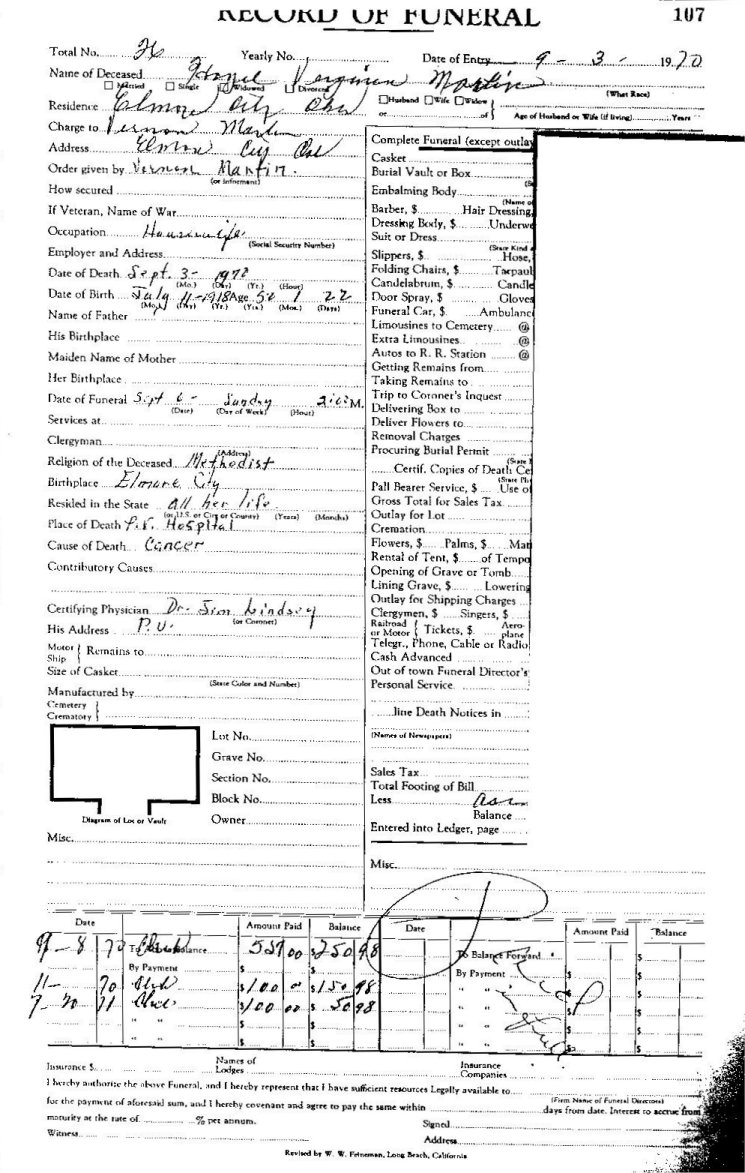 RECORD OF FUNERAL 107
Total No. 26 Yearly No. Date of Entry 9 - 3 - 1970
Name of Deceased Virginia Martin (What Race)
Married Single Widowed Divorced
Husband Wife Widow
or of Age of Husband or Wife (if living) Years
Residence Elmore City Okla
Charge to Vernon Martin
Address Elmore City Okl
Order given by Vernon Martin.
(or Informant)
How secured
If Veteran, Name of War
Occupation Housewife
(Social Security Number)
Employer and Address
Date of Death Sept. 3 -
(Mo.) (Day) (Yr.) (Hour)
Date of Birth July 11 - 1918 Age 52 1 22
(Mo.) (Day) (Yr.) (Yrs.) (Mos.) (Days)
Name of Father
His Birthplace
Maiden Name of Mother
Her Birthplace
Date of Funeral Sept 6 - Sunday 2:00 M.
(Date) (Day of Week) (Hour)
Services at
Clergyman
(Address)
Religion of the Deceased Methodist
Birthplace Elmore City
Resided in the State all her life
(or U.S. or City or County) (Years) (Months)
Place of Death P.V. Hospital
Cause of Death Cancer
Contributory Causes
Certifying Physician Dr. Jim Lindsey
(or Coroner)
His Address P.V.
Motor
Ship Remains to
Size of Casket
(State Color and Number)
Manufactured by
Cemetery
Crematory
Lot No.
Grave No.
Section No.
Block No.
Owner
Diagram of Lot or Vault
Misc.
Complete Funeral (except outlay
Casket
Burial Vault or Box
(S
Embalming Body
(Name o
Barber, $ Hair Dressing,
Dressing Body, $ Underwe
Suit or Dress
(State Kind
Slippers, $ Hose,
Folding Chairs, $ Tarpaul
Candelabrum, $ Candle
Door Spray, $ Gloves
Funeral Car, $ Ambulanc
Limousines to Cemetery @
Extra Limousines @
Autos to R. R. Station @
Getting Remains from
Taking Remains to
Trip to Coroner's Inquest
Delivering Box to
Deliver Flowers to
Removal Charges
Procuring Burial Permit
(State
Certif. Copies of Death Ce
(State Ph
Pall Bearer Service, $ Use o
Gross Total for Sales Tax
Outlay for Lot
Cremation
Flowers, $ Palms, $ Mat
Rental of Tent, $ of Tempo
Opening of Grave or Tomb
Lining Grave, $ Lowering
Outlay for Shipping Charges
Clergymen, $ Singers, $
Railroad Aero-
or Motor Tickets, $ plane
Telegr., Phone, Cable or Radio
Cash Advanced
Out of town Funeral Director's
Personal Service
line Death Notices in
(Names of Newspapers)
Sales Tax
Total Footing of Bill
Less
Balance
Entered into Ledger, page
Misc.
Date Amount Paid Balance Date Amount Paid Balance
9 - 8 70 To Balance 539 00 $250 98 To Balance Forward $
By Payment $ $ By Payment $ $
11 - 70 $100 0 $150 98 " " $ $
7 - 20 71 $100 00 $50 98 " " $ $
" " $ $ " " $ $
" " $ $ " " $ $
Pd in full
Insurance $ Names of Lodges Insurance Companies
I hereby authorize the above Funeral, and I hereby represent that I have sufficient resources Legally available to
(Firm Name of Funeral Directors)
for the payment of aforesaid sum, and I hereby covenant and agree to pay the same within days from date. Interest to accrue from
maturity at the rate of % per annum. Signed
Witness Address
Revised by W. W. Feineman, Long Beach, California